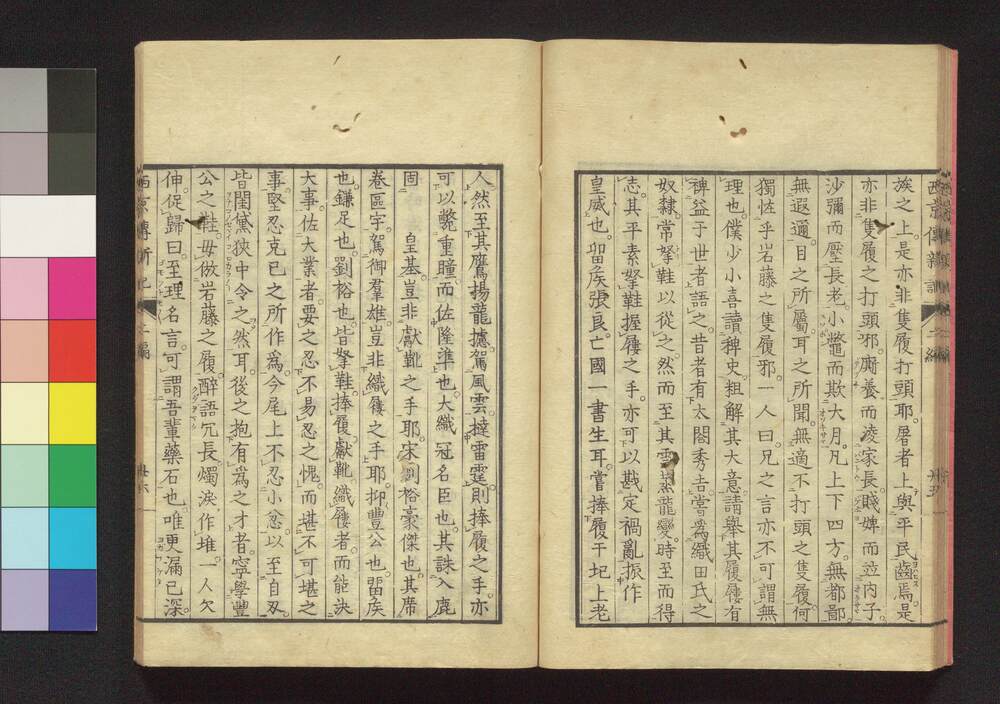 族之上是亦非隻履打頭耶屠者上與平民齒焉是
亦非隻履之打頭邪廝養而凌家長賤婢而並内子
沙彌而壓長老小鼈而欺大月凡上下四方無都鄙
無遐邇目之所屬耳之所聞無適不打頭之隻履何
獨恠乎岩藤之隻履邪一人曰兄之言亦不可謂無
理也僕少小喜讀稗史粗解其大意請舉其履屨有
裨益于世者語之昔者有太閤秀吉嘗爲織田氏之
奴隸常拏鞋以從之然而至其雲蒸龍變時至而得
志其平素拏鞋握屨之手亦可以戡定禍亂振作
皇威也留矦張良亡國一書生耳嘗捧履于圯上老
人然至其鷹揚龍攄駕風雲撻雷霆則捧履之手亦
可以斃重瞳而佐隆準也大織冠名臣也其誅入鹿
固
皇基豈非獻靴之手耶宋劉裕豪傑也其席
卷區宇駕御羣雄豈非織屨之手耶抑豐公也留矦
也鎌足也劉裕也皆拏鞋捧履獻靴織屨者而能決
大事佐大業者要之忍不易忍之愧而堪不可堪之
事堅忍克己之所作爲今尾上不忍小忿以至自刃
皆閨黛狹中令之然耳後之抱有爲之才者寧學豐
公之鞋毋做岩藤之履醉語冗長燭淚作堆一人欠
伸促歸曰至理名言可謂吾輩藥石也唯更漏已深